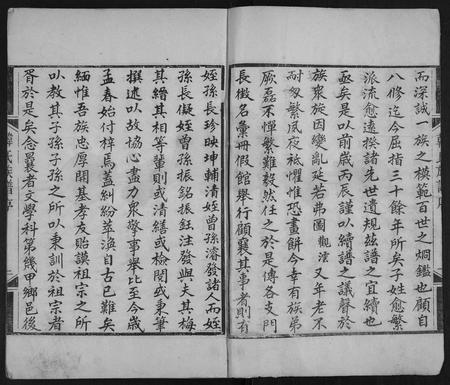 而深誠一族之模範百世之烱鑑也顧自
八修迄今屈指三十餘年所矣子姓愈繁
派流愈遠揆諸先世遺規玆譜之宜續也
亟矣是以前歲丙辰謹以續譜之議聲於
族衆旋因變亂延若弗圖觀瀅又年老不
耐匆繁夙夜祗懼惟恐畫餅今幸有族弟
厥磊不憚繁難毅然任之於是傳各支門
長徵名彙冊假館舉行顧襄其事者則有
姪孫長珍映坤輔清姪曾孫濬發諸人而姪
孫長儗姪曾孫振銘振鈺注發與夫其梅
其縉其相等輩則或清繕或檢閱或秉筆
撰述以故協心盡力衆擎事舉比至今歲
孟春始付梓焉蓋糾紛萃渙自古已難矣
緬惟吾族忠厚開基孝友貽謨祖宗之所
以教其子孫子孫之所以秉訓於祖宗者
胥於是矣念曩者文學科第幾甲鄉邑後
韓氏族譜序